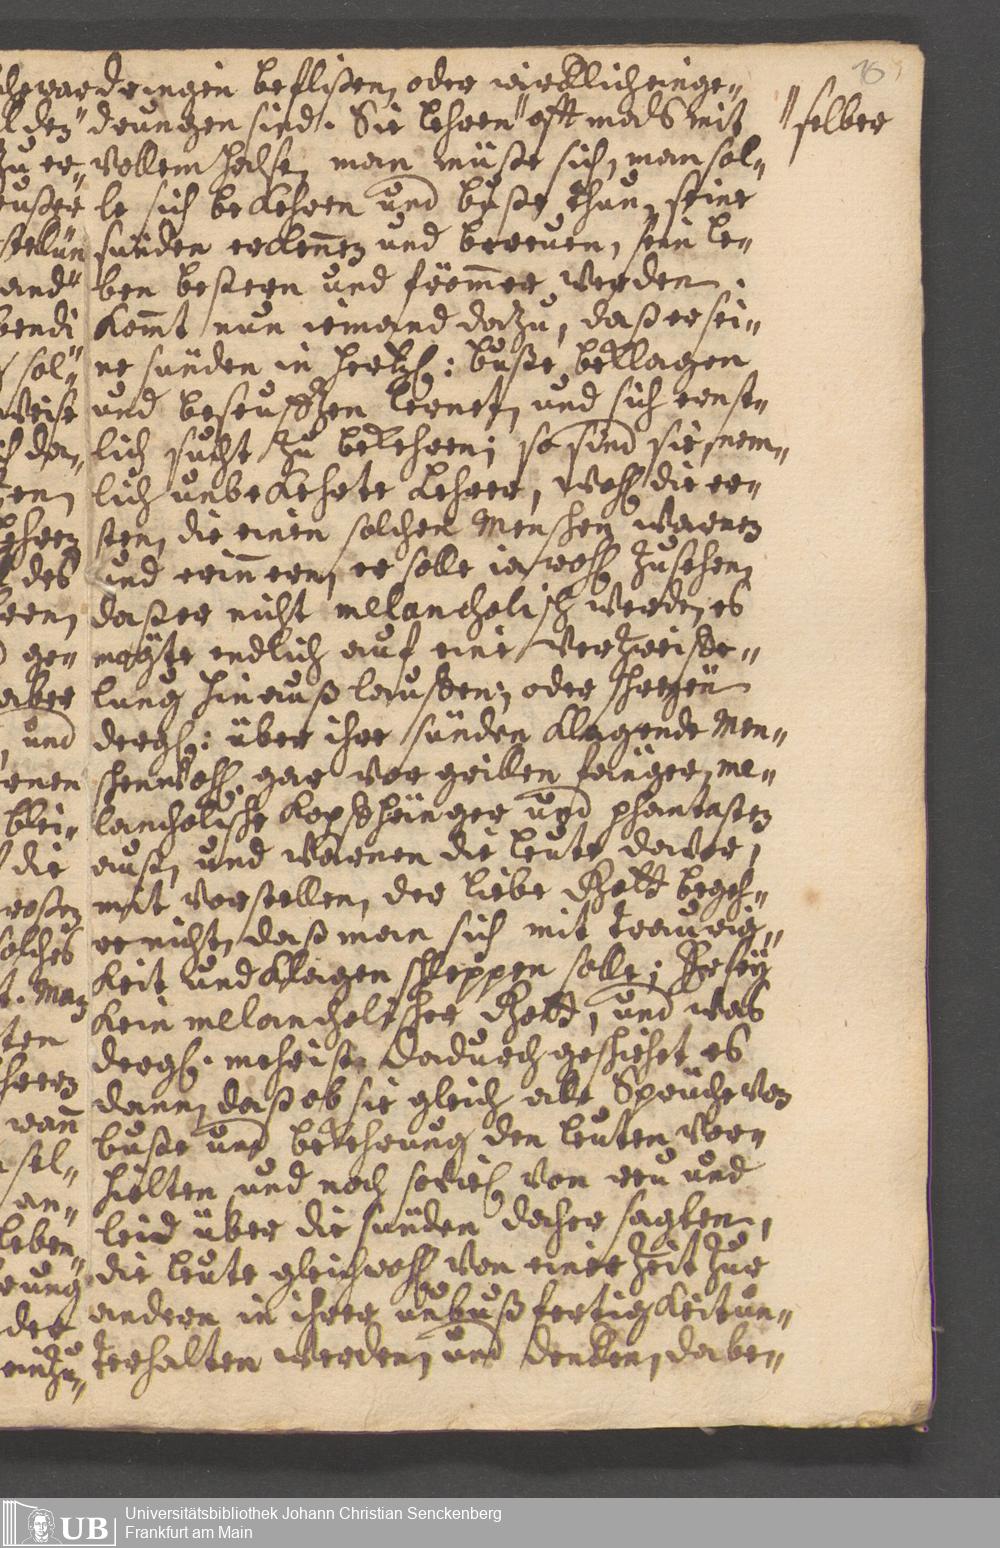 dringen beflißen, oder wircklich einge-
drungen sind. Sie lehren " offtmals mit
" selber
vollem Halse, man müße sich, man sol-
le sich bekehren und buße thun, seine
sünden erkennen und bereuen, sein le-
ben beßern und frömmer werden.
Kommt nun iemand dazu, daß er sei-
ne sünden in hertzl: buße beklagen
und beseuffzen lernet, und sich ernst-
lich sucht zu bekehren; so sind sie, nem-
lich unbekehrte Lehrer, wohl die er-
sten, die einen solchen Menschen warnen
und erinnern, er solle ia wohl zusehen,
daß er nicht melancholisch werde, es
mögte endlich auf eine Verzweiffe-
lung hinauß lauffen; oder schreyen
dergl: über ihre sünden klagende Men-
schen wohl gar vor grillen fänger, me-
lancholische Kopffhänger und phantasten
auß, und warnen die leute davor,
mit vorstellen, der liebe Gott begeh-
re nicht, daß man sich mit traurig-
keit und klagen schleppen solle; Er sey
kein melancholischer Gott, und was
dergl. mehr ist. Dadurch geschiehet es
dann, daß ob sie gleich alle Sprüche von
buße und bekehrung den leuten vor-
hielten und noch soviel von reu und
leid über die sünden daher sagten,
die leute gleichwohl von einer Zeit zur
andern in ihrer unbußfertigkeit un-
terhalten werden, und dencken, dabe-
Universitätsbibliothek Johann Christian Senckenberg
UB
Frankfurt am Main